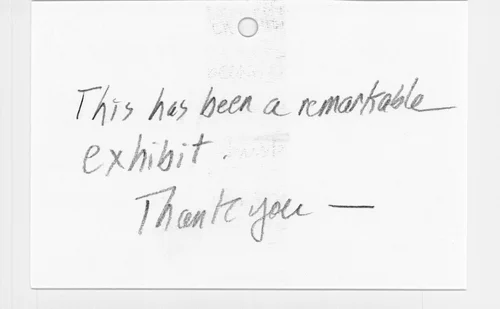 This has been a remarkable
exhibit.
Thank you —